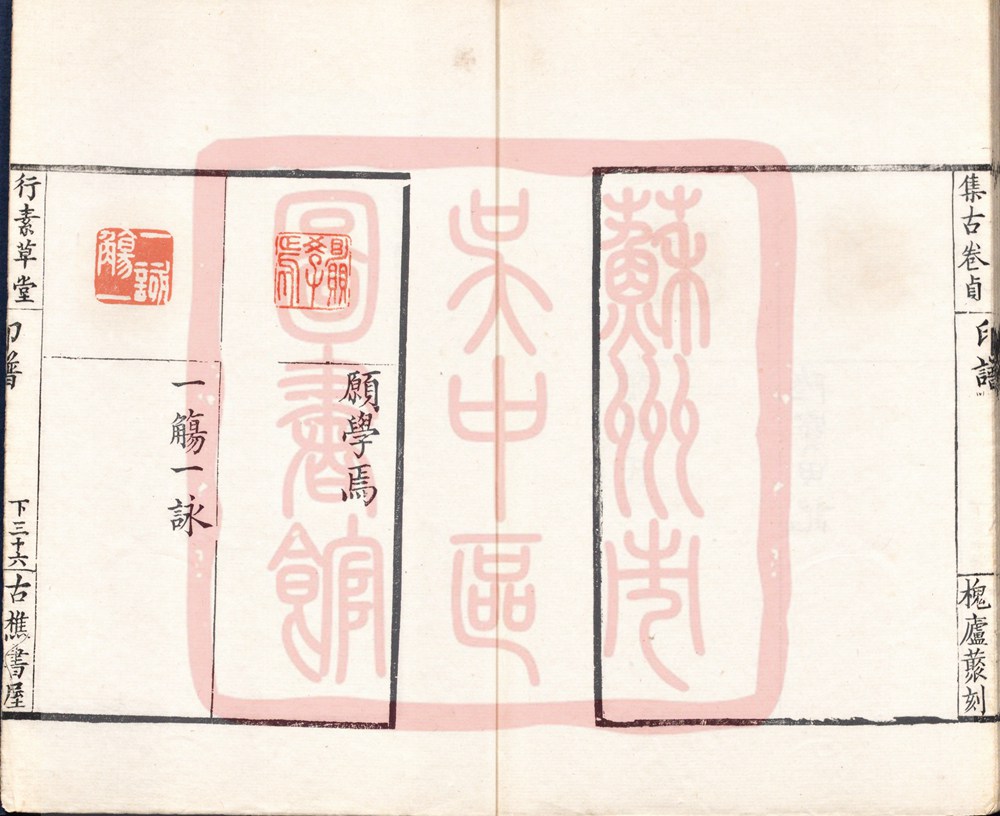 集古卷貞
印譜
槐廬叢刻
願學焉
願學焉
一詠一觴
一觴一詠
行素草堂
印譜
下三十六
古樵書屋
蘇州市
吳中區
圖書館